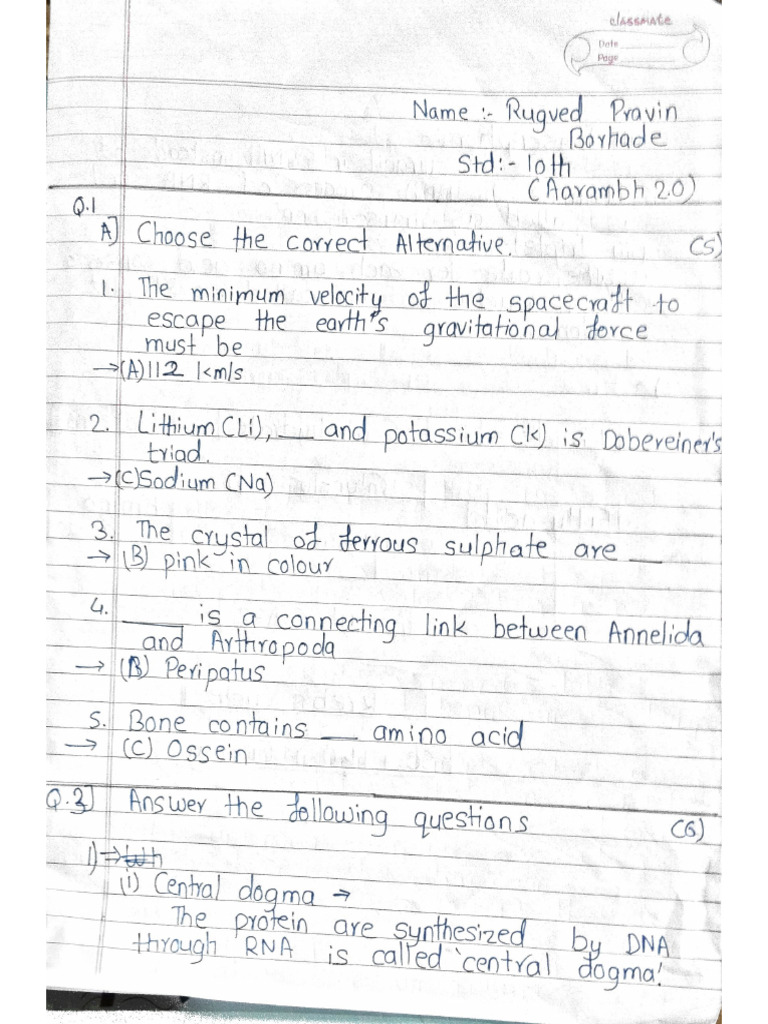 classmate
Date
Page
Name :- Rugved Pravin
Borhade
Std:- 10th
(Aarambh 2.0)
Q.1
A] Choose the correct Alternative. (5)
1. The minimum velocity of the spacecraft to
escape the earth's gravitational force
must be
→(A)112 km/s
2. Lithium (Li), __ and potassium (K) is Dobereiner's
triad.
→(C)Sodium (Na)
3. The crystal of ferrous sulphate are __
→ (B) pink in colour
4. ____ is a connecting link between Annelida
and Arthropoda
→ (B) Peripatus
5. Bone contains __ amino acid
→ (C) Ossein
Q.3] Answer the following questions (6)
1)→
(i) Central dogma →
The protein are synthesized by DNA
through RNA is called 'central dogma!